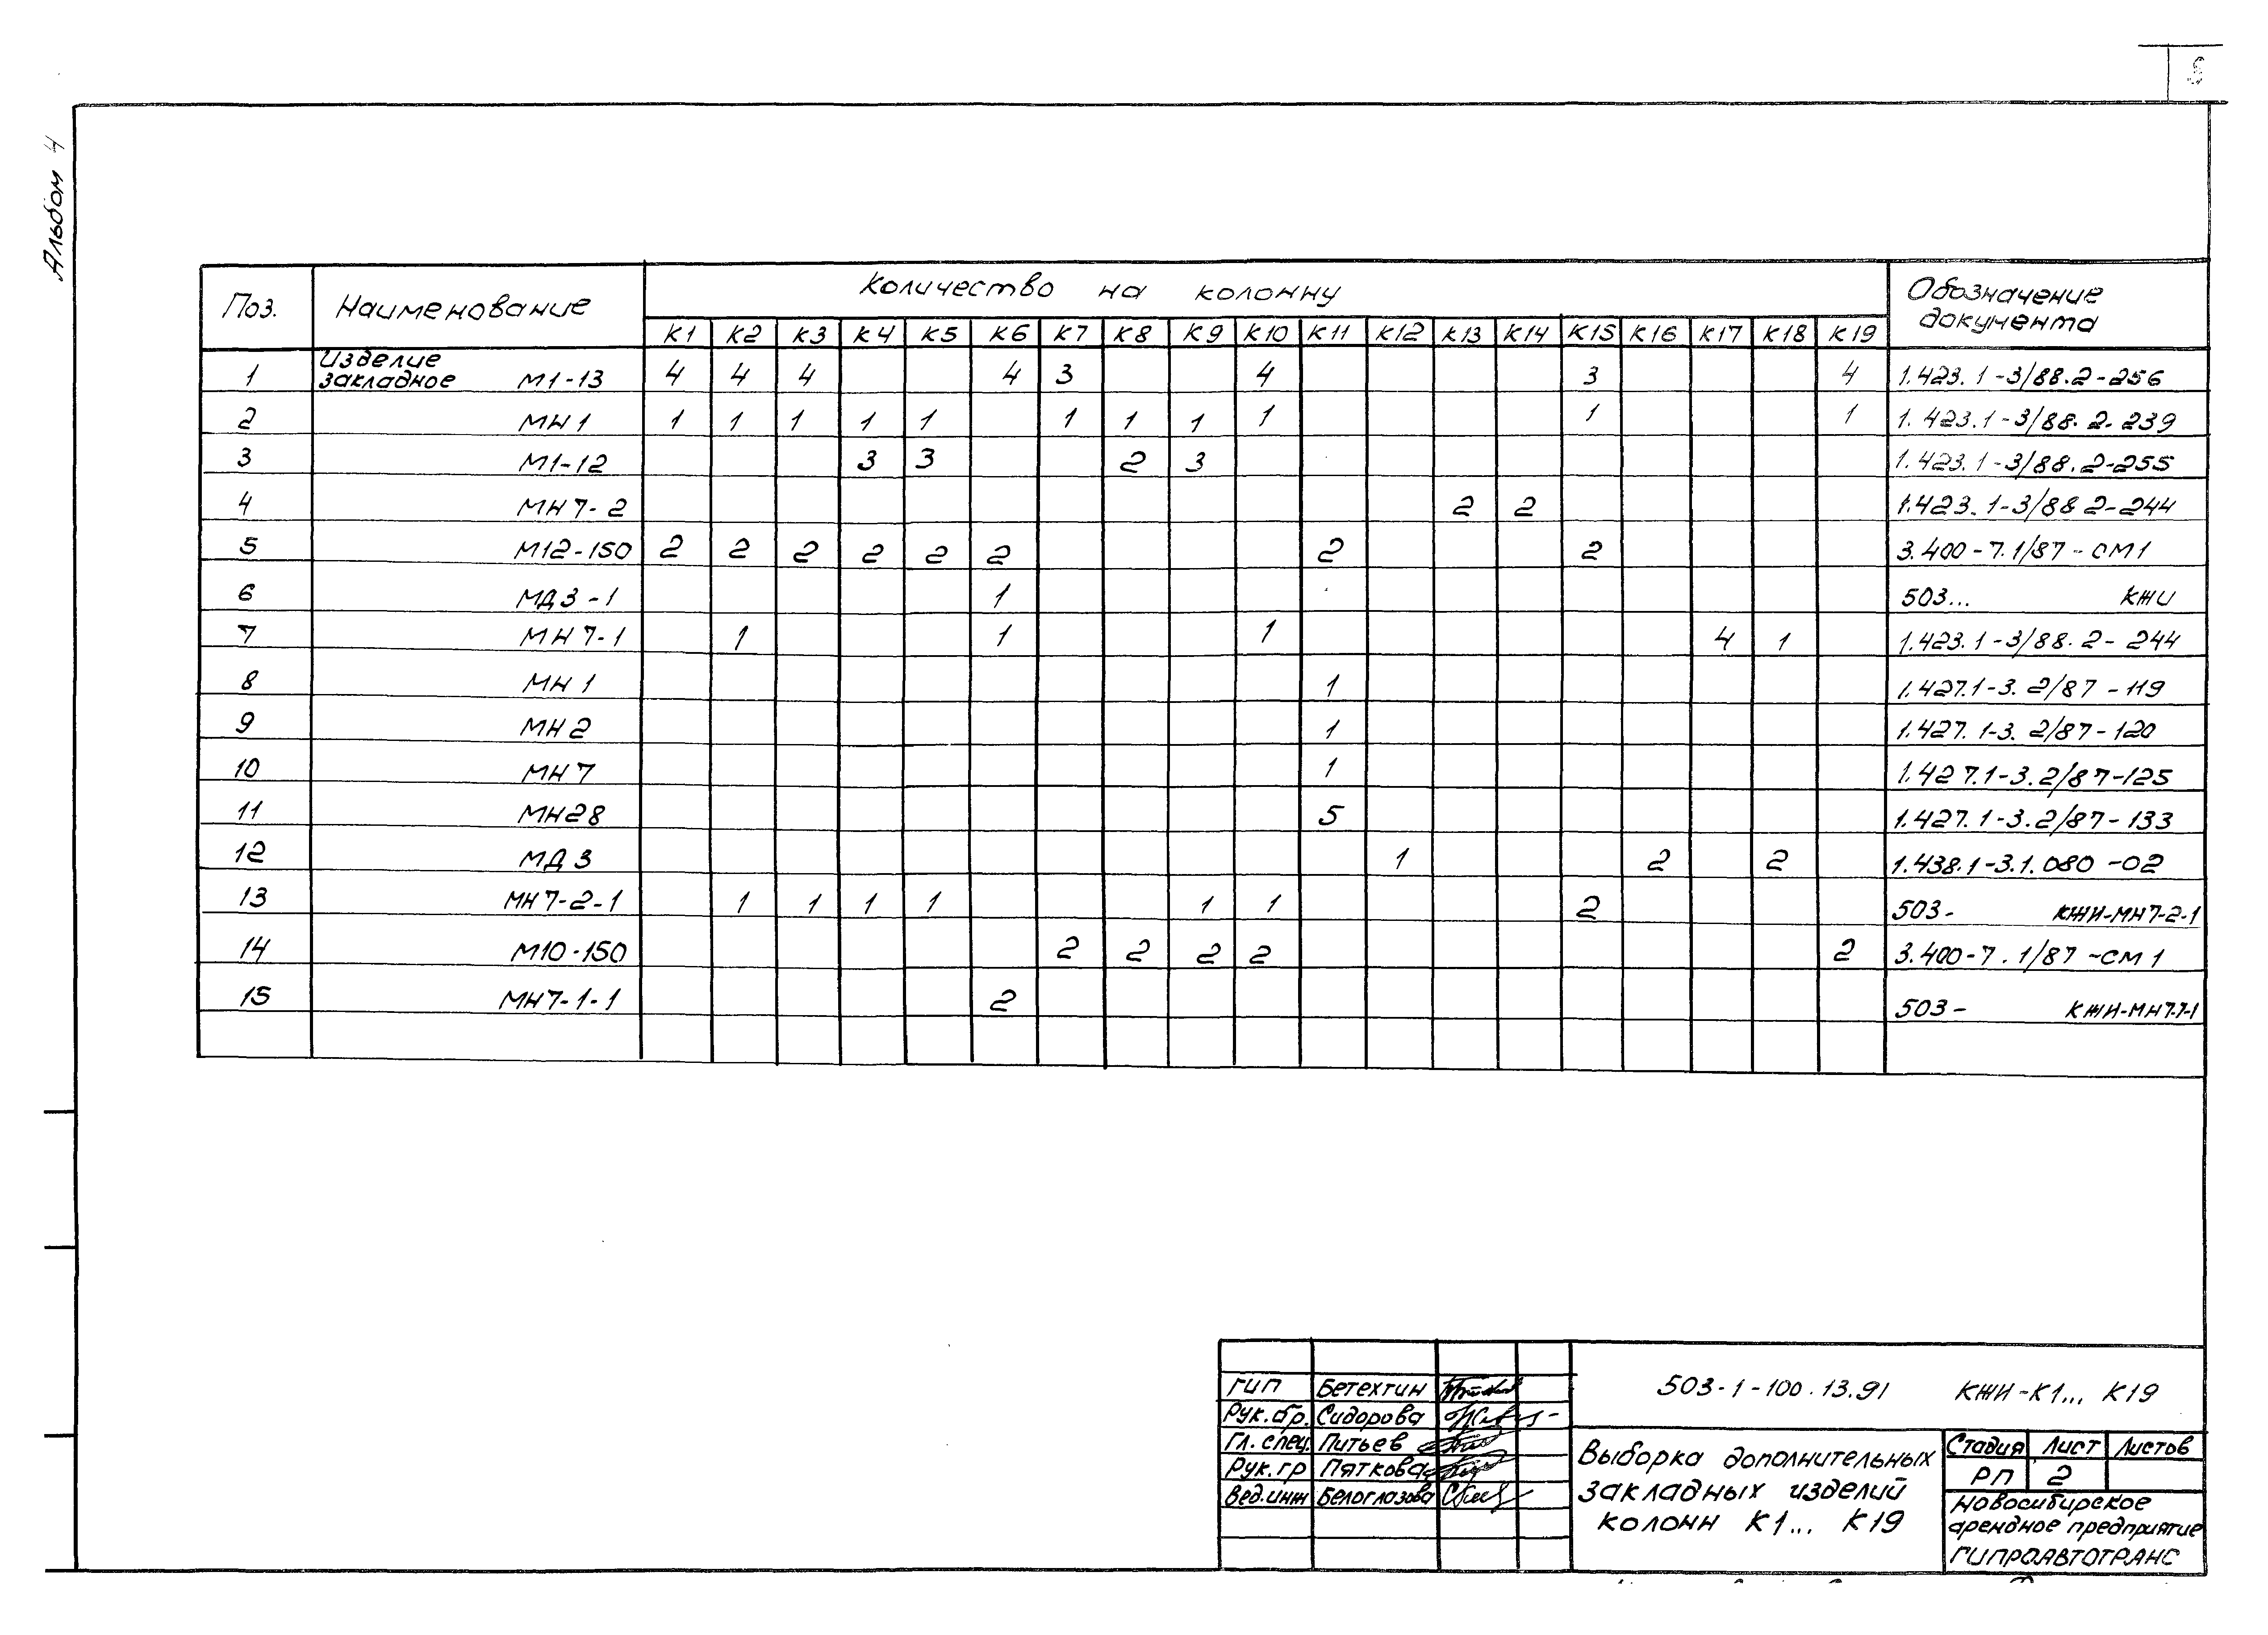 Альбом 4
Поз. Наименование Количество на колонну Обозначение документа
К1 К2 К3 К4 К5 К6 К7 К8 К9 К10 К11 К12 К13 К14 К15 К16 К17 К18 К19
1 Изделие закладное М1-13 4 4 4 4 3 4 3 4 1.423.1-3/88.2-256
2 МН1 1 1 1 1 1 1 1 1 1 1 1 1.423.1-3/88.2-239
3 М1-12 3 3 2 3 1.423.1-3/88.2-255
4 МН7-2 2 2 1.423.1-3/88 2-244
5 М12-150 2 2 2 2 2 2 2 2 3.400-7.1/87-СМ1
6 МД3-1 1 503... КЖИ
7 МН7-1 1 1 1 4 1 1.423.1-3/88.2-244
8 МН1 1 1.427.1-3.2/87-119
9 МН2 1 1.427.1-3.2/87-120
10 МН7 1 1.427.1-3.2/87-125
11 МН28 5 1.427.1-3.2/87-133
12 МД3 1 2 2 1.438.1-3.1.080-02
13 МН7-2-1 1 1 1 1 1 1 2 503- КЖИ-МН7-2-1
14 М10-150 2 2 2 2 2 3.400-7.1/87-СМ1
15 МН7-1-1 2 503-
ГИП Бетехтин
Рук.бр. Сидорова
Гл. спец. Питьев
Рук.гр Пяткова
Вед.инж Белоглазова
503-1-100.13.91 КЖИ-К1... К19
Выборка дополнительных
закладных изделий
колонн К1... К19
Стадия Лист Листов
РП 2
Новосибирское
арендное предприятие
ГИПРОАВТОТРАНС